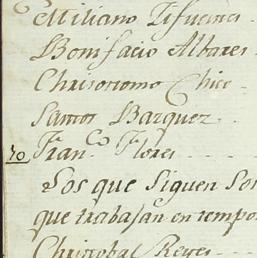 Emiliano Sifuentes
Bonifacio Albares
Chrisostomo Chico
Santos Bazquez
30 Fran.co Flores
Los que Siguen Son
que trabajan en tempo
Christobal Reyes